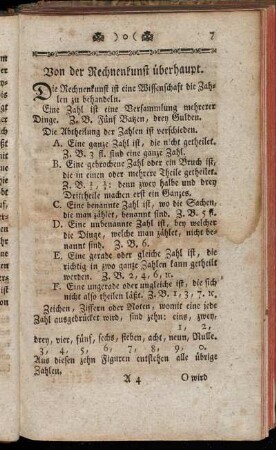 ) o (
7
Von der Rechnenkunst überhaupt.
Die Rechnenkunst ist eine Wissenschaft die Zah-
len zu behandeln.
Eine Zahl ist eine Versammlung mehrerer
Dinge. Z. B. Fünf Batzen, drey Gulden.
Die Abtheilung der Zahlen ist verschieden.
A. Eine ganze Zahl ist, die nicht getheilet.
Z. B. 3 fl. sind eine ganze Zahl.
B. Eine gebrochene Zahl oder ein Bruch ist,
die in einen oder mehrere Theile getheilet.
Z. B. denn zwey halbe und drey
Dritttheile machen erst ein Ganzes.
C. Eine benannte Zahl ist, wo die Sachen,
die man zählet, benannt sind. Z. B. 5 fl.
D. Eine unbenannte Zahl ist, bey welcher
die Dinge, welche man zählet, nicht be-
nannt sind. Z. B, 6.
E. Eine gerade oder gleiche Zahl ist, die
richtig in zwo ganze Zahlen kann getheilt
werden. Z. B. 2, 4, 6, ꝛc.
F. Eine ungerade oder ungleiche ist, die sich
nicht also theilen läßt. Z. B. 1, 3, 7, ꝛc,
Zeichen, Ziffern oder Noten, womit eine jede
Zahl ausgedrücket wird, sind zehn: eins, zwey,
1, 2,
drey, vier, fünf, sechs, sieben, acht, neun, Nulle.
3, 4, 5, 6, 7, 8, 9, 0.
Aus diesen zehn Figuren entstehen alle übrige
Zahlen.
A 4 O wird